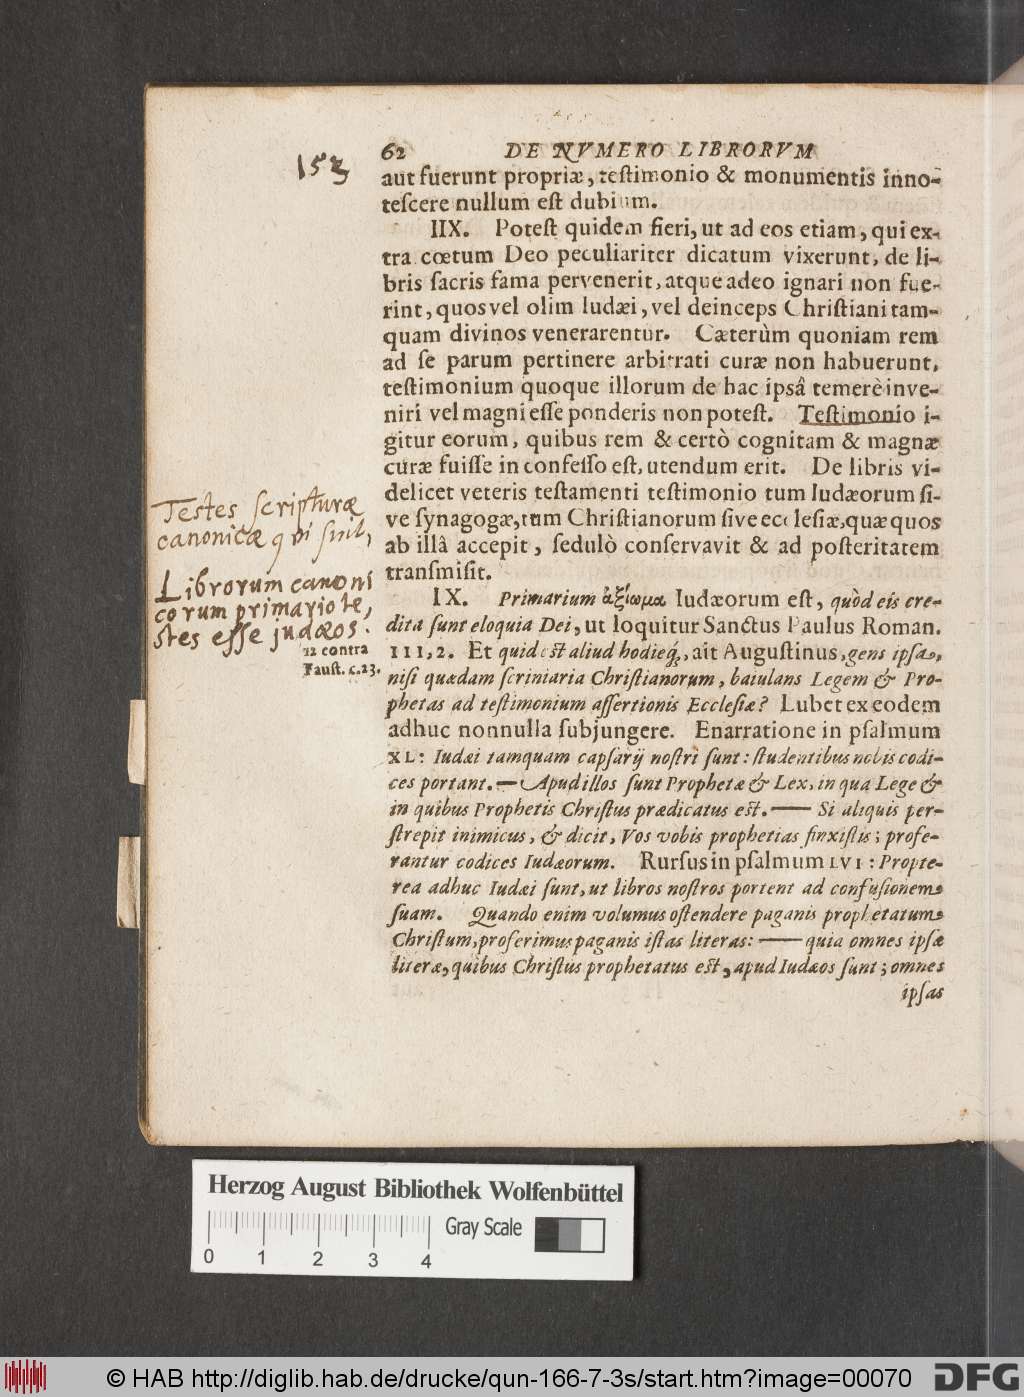 153
62 DE NVMERO LIBRORVM
aut fuerunt propriæ, teſtimonio & monumentis inno-
teſcere nullum eſt dubium.
IIX. Poteſt quidem fieri, ut ad eos etiam, qui ex-
tra cœtum Deo peculiariter dicatum vixerunt, de li-
bris ſacris fama pervenerit, atque adeo ignari non fue-
rint, quos vel olim Iudæi, vel deinceps Chriſtiani tam-
quam divinos venerarentur. Cæterùm quoniam rem
ad ſe parum pertinere arbitrati curæ non habuerunt,
teſtimonium quoque illorum de hac ipsâ temerè inve-
niri vel magni eſſe ponderis non poteſt. Teſtimonio i-
gitur eorum, quibus rem & certò cognitam & magnæ
curæ fuiſſe in confeſſo eſt, utendum erit. De libris vi-
delicet veteris teſtamenti teſtimonio tum Iudæorum ſi-
ve ſynagogæ, tum Chriſtianorum ſive eccleſiæ, quæ quos
ab illâ accepit, ſedulò conſervavit & ad poſteritatem
tranſmiſit.
Testes scripturæ
canonicæ qvi sint,
Librorum canoni
corum primario te,
stes esse judæos.
IX. Primarium ἀξίωμα Iudæorum eſt, quòd eis cre-
dita ſunt eloquia Dei, ut loquitur Sanctus Paulus Roman.
III, 2. Et quid eſt aliud hodieq́;, ait Auguſtinus, gens ipſa,
12 contra
Fauſt. c. 23.
niſi quædam ſcriniaria Chriſtianorum, baiulans Legem & Pro-
phetas ad teſtimonium aſſertionis Eccleſiæ? Lubet ex eodem
adhuc nonnulla ſubjungere. Enarratione in pſalmum
XL: Iudæi tamquam capſarij noſtri ſunt: ſtudentibus nobis codi-
ces portant. — Apud illos ſunt Prophetæ & Lex, in qua Lege &
in quibus Prophetis Chriſtus prædicatus eſt. — Si aliquis per-
ſtrepit inimicus, & dicit, Vos vobis prophetias finxiſtis; profe-
rantur codices Iudæorum. Rurſus in pſalmum LVI: Propte-
rea adhuc Iudæi ſunt, ut libros noſtros portent ad confuſionem
ſuam. Quando enim volumus oſtendere paganis prophetatum
Chriſtum, proferimus paganis iſtas literas: — quia omnes ipſæ
literæ, quibus Chriſtus prophetatus eſt, apud Iudæos ſunt; omnes
ipſas
Herzog August Bibliothek Wolfenbüttel
Gray Scale
0 1 2 3 4
© HAB http://diglib.hab.de/drucke/qun-166-7-3s/start.htm?image=00070
DFG